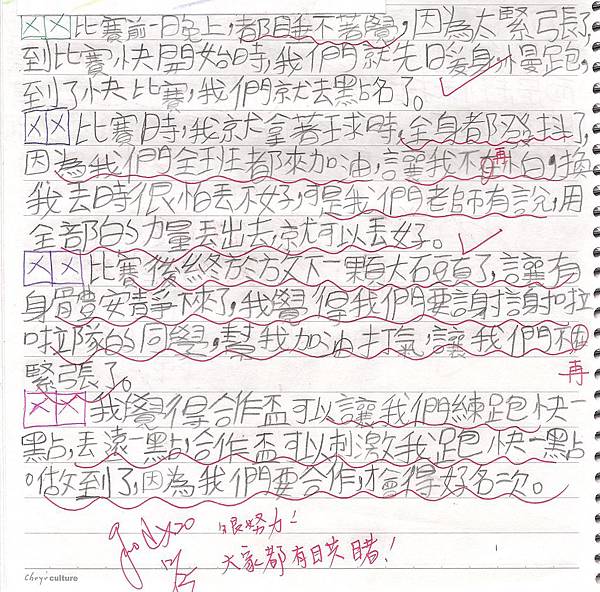 比賽前一日晚上,都睡不著覺,因為太緊張了,
到比賽快開始時,我們就先暖身慢跑,
到了快比賽,我們就去點名了。
比賽時,我就拿著球時,全身都發抖了,
因為我們全班都來加油,讓我不再怕,換
我丟時很怕丟不好,可是我們老師有說,用
全部的力量丟出去,就可以丟好。
比賽後終於放下一顆大石頭了,讓有
身體安靜下來了,我覺得我們要謝謝啦
啦隊的同學,幫我加油打氣,讓我們不再
緊張了。
我覺得合作盃可以讓我們練跑快一
點,丟遠一點,合作盃可以刺激我跑快一點
。做到了,因為我們要合作,才會得好名次。
good
很努力!
大家都有目共睹!
Chuyi culture